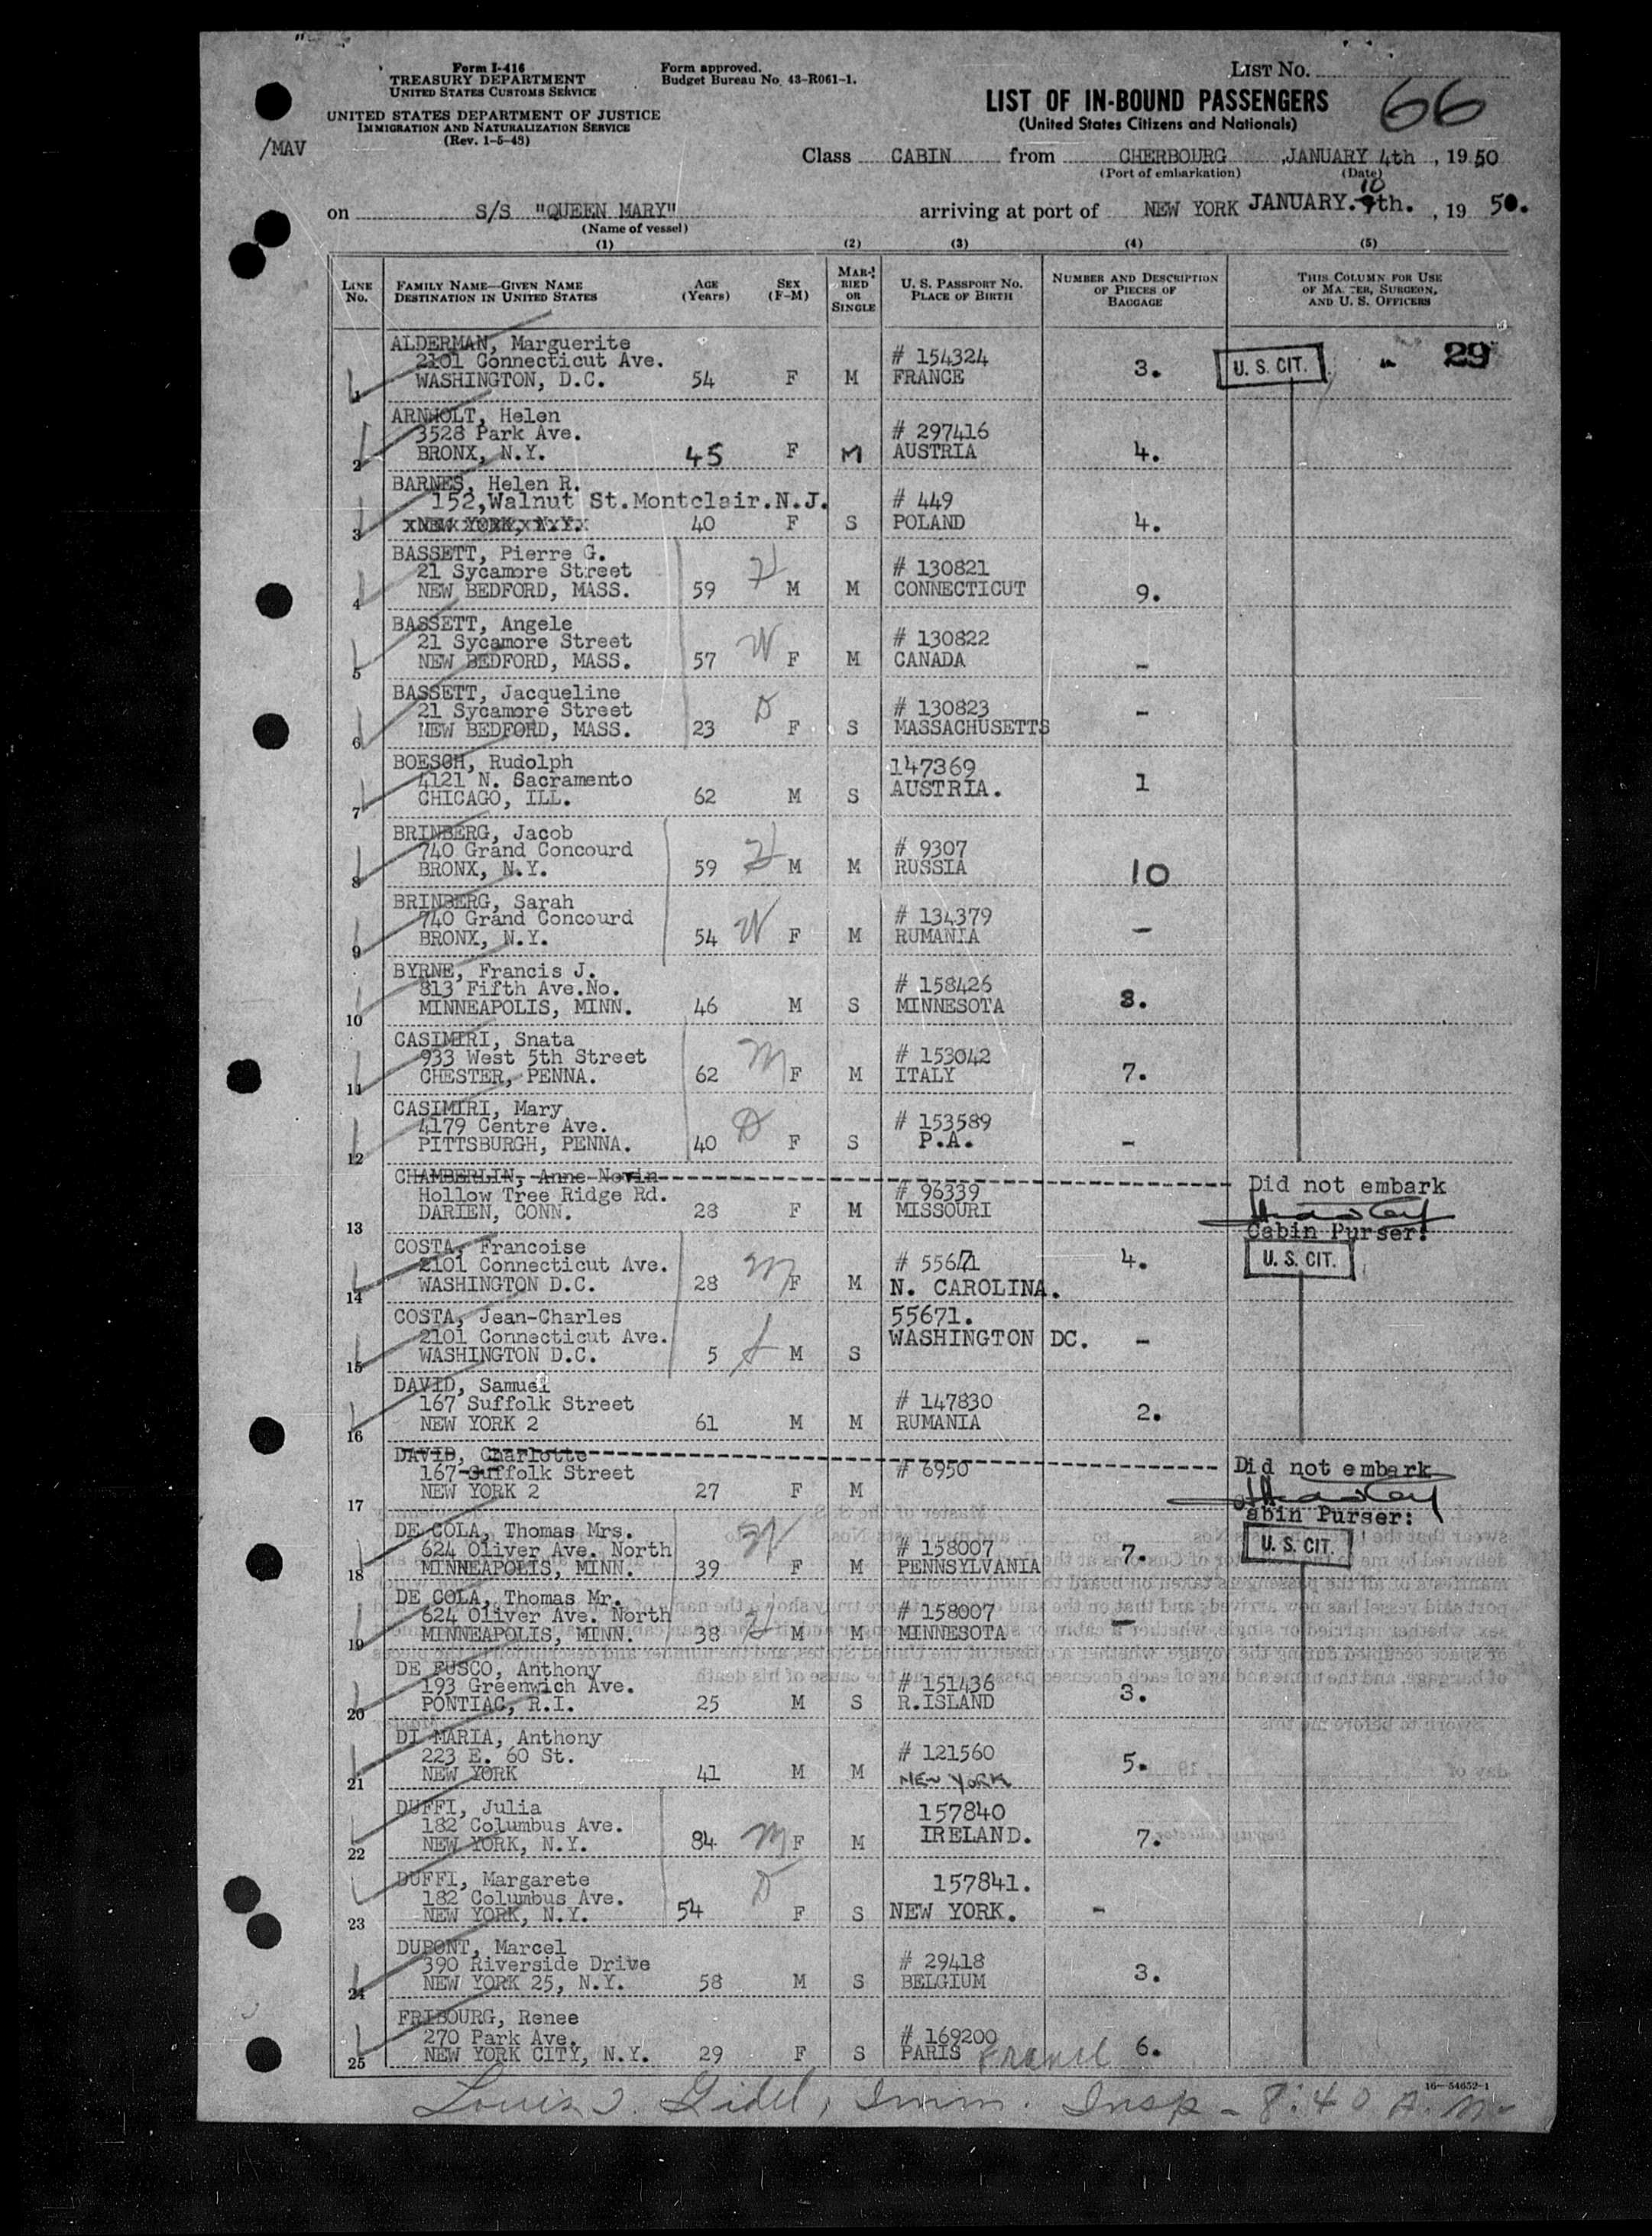 Form I-416
TREASURY DEPARTMENT
UNITED STATES CUSTOMS SERVICE
Form approved.
Budget Bureau No. 43-R061-1.
LIST No.
66
UNITED STATES DEPARTMENT OF JUSTICE
IMMIGRATION AND NATURALIZATION SERVICE
(Rev. 1-5-48)
/MAV
LIST OF IN-BOUND PASSENGERS
(United States Citizens and Nationals)
Class CABIN from CHERBOURG , JANUARY 4th , 1950
(Port of embarkation) (Date)
10
on S/S "QUEEN MARY" arriving at port of NEW YORK JANUARY. 9th. , 19 50.
(Name of vessel)
(1) (2) (3) (4) (5)
LINE No. FAMILY NAME—GIVEN NAME DESTINATION IN UNITED STATES AGE (Years) SEX (F-M) MARRIED OR SINGLE U. S. PASSPORT No. PLACE OF BIRTH NUMBER AND DESCRIPTION OF PIECES OF BAGGAGE THIS COLUMN FOR USE OF MASTER, SURGEON, AND U. S. OFFICERS
ALDERMAN, Marguerite
2101 Connecticut Ave. # 154324 3. U. S. CIT. 29
1 WASHINGTON, D.C. 54 F M FRANCE
ARNHOLT, Helen
3528 Park Ave. # 297416
2 BRONX, N.Y. 45 F M AUSTRIA 4.
BARNES, Helen R.
152,Walnut St.Montclair.N.J. # 449
3 xNEW YORK, N.Y.x 40 F S POLAND 4.
BASSETT, Pierre G.
21 Sycamore Street H # 130821
4 NEW BEDFORD, MASS. 59 M M CONNECTICUT 9.
BASSETT, Angele
21 Sycamore Street W # 130822
5 NEW BEDFORD, MASS. 57 F M CANADA -
BASSETT, Jacqueline
21 Sycamore Street D # 130823 -
6 NEW BEDFORD, MASS. 23 F S MASSACHUSETTS
BOESCH, Rudolph 147369
4121 N. Sacramento AUSTRIA. 1
7 CHICAGO, ILL. 62 M S
BRINBERG, Jacob
740 Grand Concourd H # 9307
8 BRONX, N.Y. 59 M M RUSSIA 10
BRINBERG, Sarah
740 Grand Concourd W # 134379
9 BRONX, N.Y. 54 F M RUMANIA -
BYRNE, Francis J.
813 Fifth Ave.No. # 158426
10 MINNEAPOLIS, MINN. 46 M S MINNESOTA 3.
CASIMIRI, Snata
933 West 5th Street M # 153042
11 CHESTER, PENNA. 62 F M ITALY 7.
CASIMIRI, Mary
4179 Centre Ave. D # 153589
12 PITTSBURGH, PENNA. 40 F S P.A. -
CHAMBERLIN, Anne Nevin Did not embark
Hollow Tree Ridge Rd. # 96339
13 DARIEN, CONN. 28 F M MISSOURI Cabin Purser:
COSTA, Francoise
2101 Connecticut Ave. M # 55671 4. U. S. CIT.
14 WASHINGTON D.C. 28 F M N. CAROLINA.
COSTA, Jean-Charles 55671.
2101 Connecticut Ave. WASHINGTON DC. -
15 WASHINGTON D.C. 5 M S
DAVID, Samuel
167 Suffolk Street # 147830
16 NEW YORK 2 61 M M RUMANIA 2.
DAVID, Charlotte Did not embark
167 Suffolk Street # 6950
17 NEW YORK 2 27 F M abin Purser:
DE COLA, Thomas Mrs.
624 Oliver Ave. North W # 158007 7. U. S. CIT.
18 MINNEAPOLIS, MINN. 39 F M PENNSYLVANIA
DE COLA, Thomas Mr.
624 Oliver Ave. North # 158007 -
19 MINNEAPOLIS, MINN. 38 H M M MINNESOTA
DE FUSCO, Anthony
193 Greenwich Ave. # 151436
20 PONTIAC, R.I. 25 M S R.ISLAND 3.
DI MARIA, Anthony
223 E. 60 St. # 121560
21 NEW YORK 41 M M NEW YORK 5.
DUFFI, Julia 157840
182 Columbus Ave. IRELAND.
22 NEW YORK, N.Y. 84 M F M 7.
DUFFI, Margarete D 157841.
182 Columbus Ave.
23 NEW YORK, N.Y. 54 F S NEW YORK. -
DUPONT, Marcel
390 Riverside Drive # 29418
24 NEW YORK 25, N.Y. 58 M S BELGIUM 3.
FRIBOURG, Renee
270 Park Ave. # 169200
25 NEW YORK CITY, N.Y. 29 F S PARIS France 6.
16—54652-1
Louis J. Gidel, Imm. Insp - 8:40 A.M.